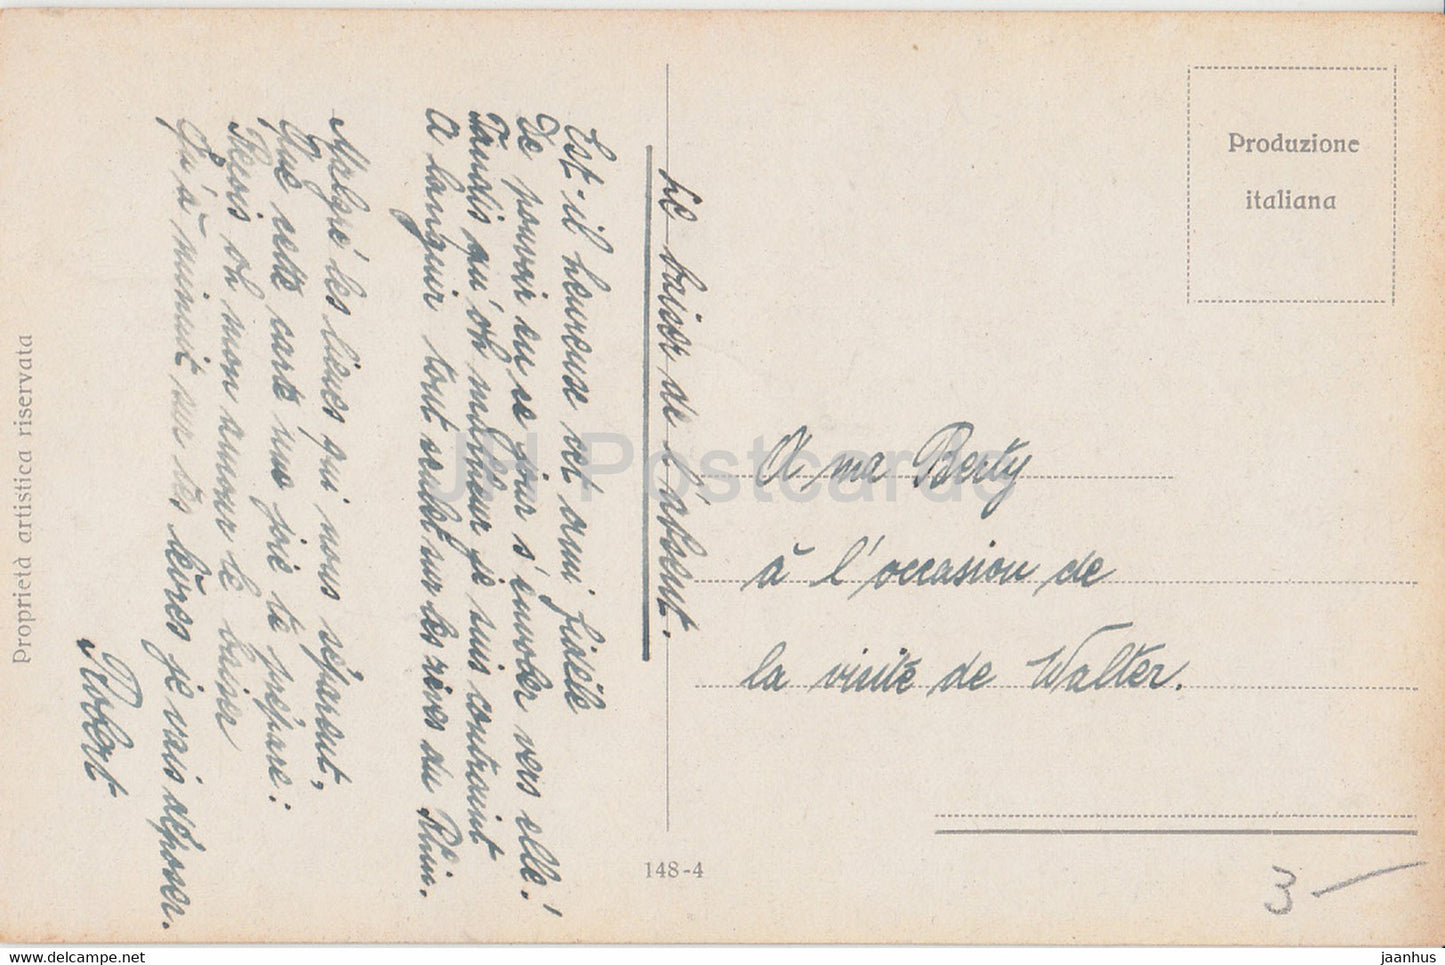 Le baiser de l'absent.
Est-il heureuse cet ami fidèle
De pouvoir en ce jour s'envoler vers elle!
Tandis qu'oh malheur je suis contraint
A languir tout seulet sur les rives du Rhin.
Malgré les lieues qui nous séparent,
Que cette carte une joie te prépare:
Reçois oh mon amour le baiser
Qu'à minuit sur tes lèvres je vais déposer.
Robert
A ma Berty
à l'occasion de
la visite de Walter.
Produzione
italiana
Proprietà artistica riservata
148-4
3-
JH Postcards
www.delcampe.net
jaanhus